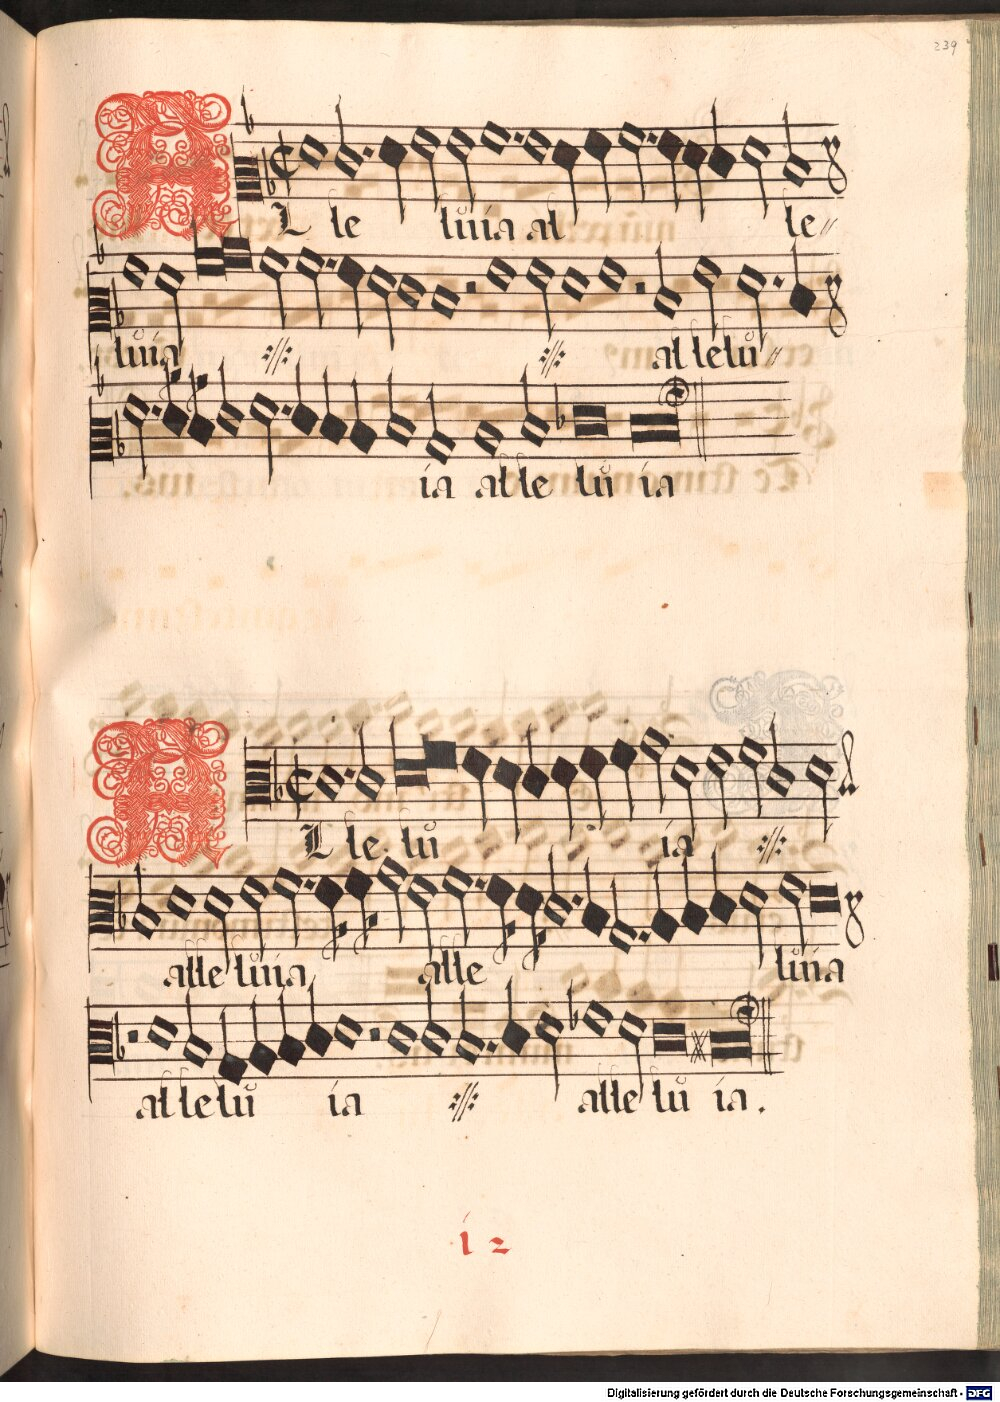 239
A L le luia al le
luia al lelu
ia al le lu ia
A L le lu ia
alle luia alle luia
al le lu ia alle lu ia.
12
Digitalisierung gefördert durch die Deutsche Forschungsgemeinschaft - DFG